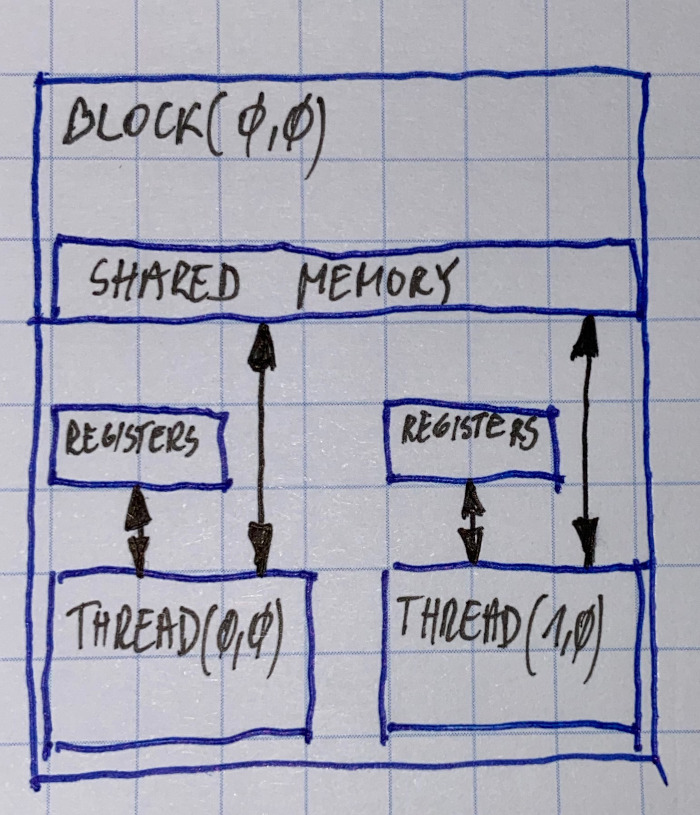 BLOCK(0,0)
SHARED MEMORY
REGISTERS
REGISTERS
THREAD(0,0)
THREAD(1,0)